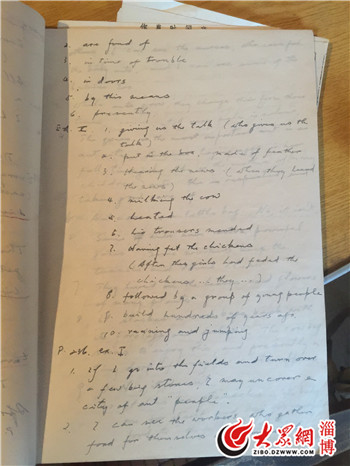 2. are fond of
3. in time of trouble
4. in doors
5. by this means
6. presently
Ex. I 1. giving us the talk (who gives us the
talk)
2. put in the box, made of feather
3. Hearing the news (when they heard
the news)
4. milking the cow
5. heated
6. his trousers mended
7. Having fed the chickens
(After the girls had feded the
chickens, they ...)
8. followed by a group of young people
9. build hundreds of years ago.
10. running and jumping
P. ex. I.
1. If I go into the fields and turn over
a few big stones, I may uncover a
city of ant "people".
2. I can see the workers, who gather
food for themselves
大众网 淄博
ZIBO.DZWWW.COM